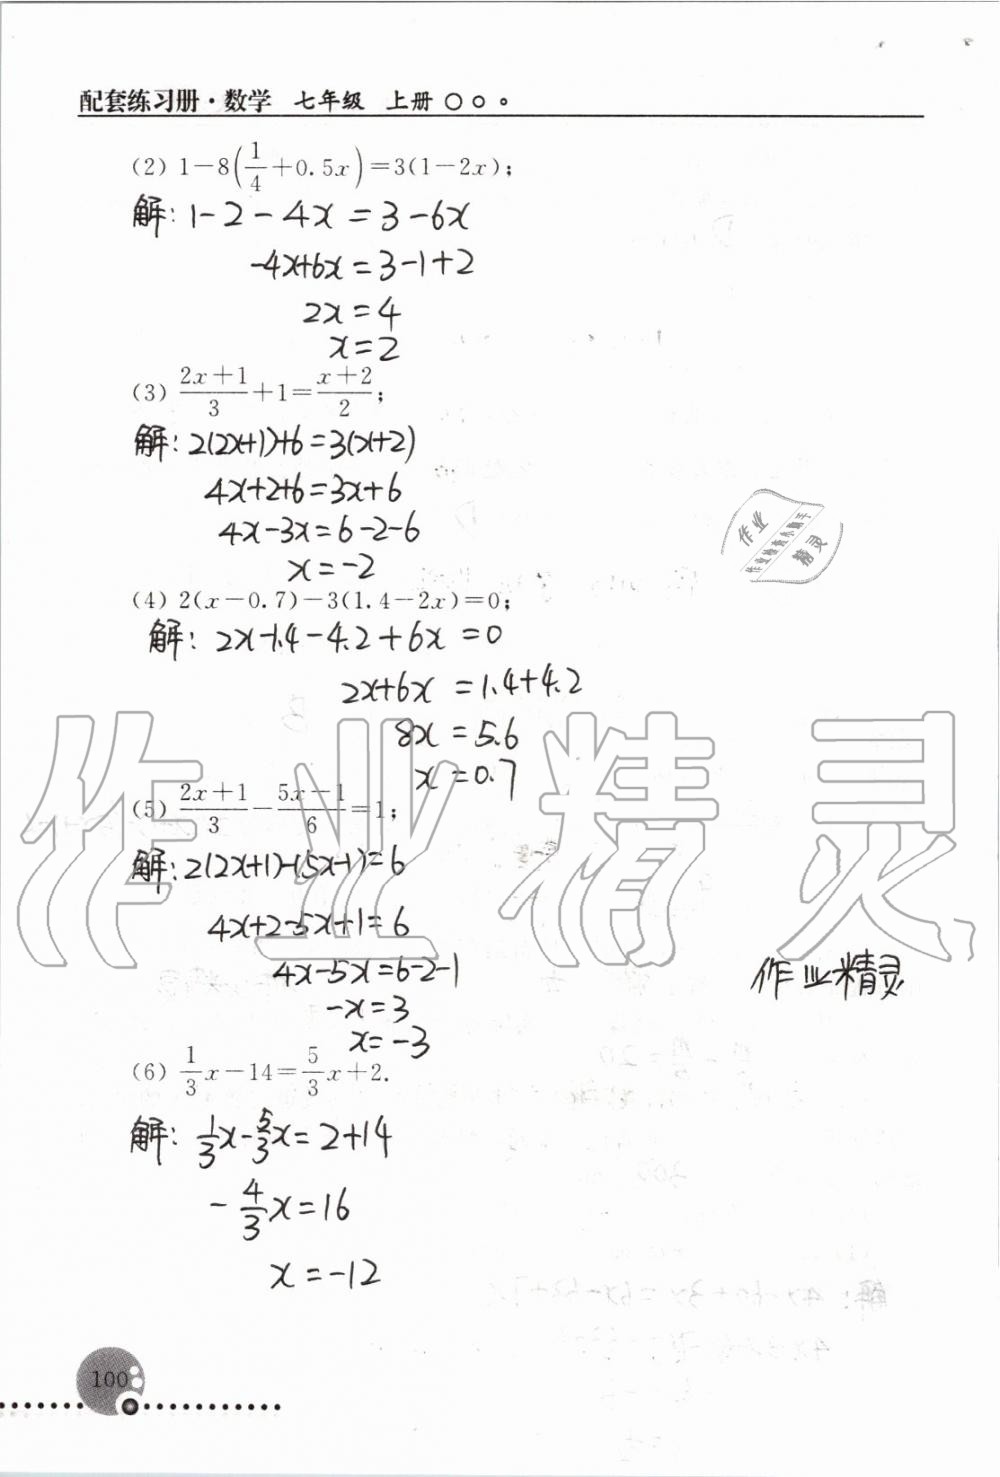 配套练习册·数学 七年级 上册
(2) 1-8(1/4+0.5x)=3(1-2x);
解: 1-2-4x=3-6x
-4x+6x=3-1+2
2x=4
x=2
(3) (2x+1)/3+1=(x+2)/2;
解: 2(2x+1)+6=3(x+2)
4x+2+6=3x+6
4x-3x=6-2-6
x=-2
(4) 2(x-0.7)-3(1.4-2x)=0;
解: 2x-1.4-4.2+6x=0
2x+6x=1.4+4.2
8x=5.6
x=0.7
(5) (2x+1)/3-(5x-1)/6=1;
解: 2(2x+1)-(5x-1)=6
4x+2-5x+1=6
4x-5x=6-2-1
-x=3
x=-3
(6) 1/3x-14=5/3x+2.
解: 1/3x-5/3x=2+14
-4/3x=16
x=-12
作业
精灵
作业精灵
作业精灵
100